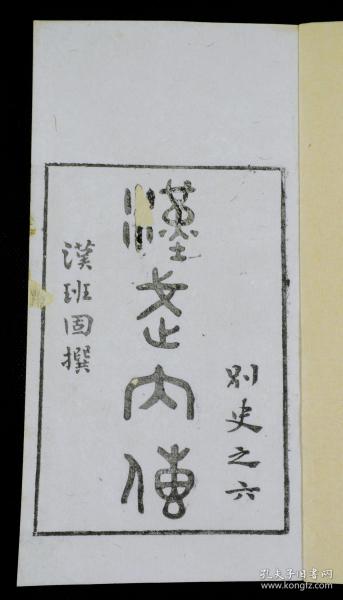 別史之六
漢武內傳
漢班固撰
孔夫子旧书网
www.kongfz.com